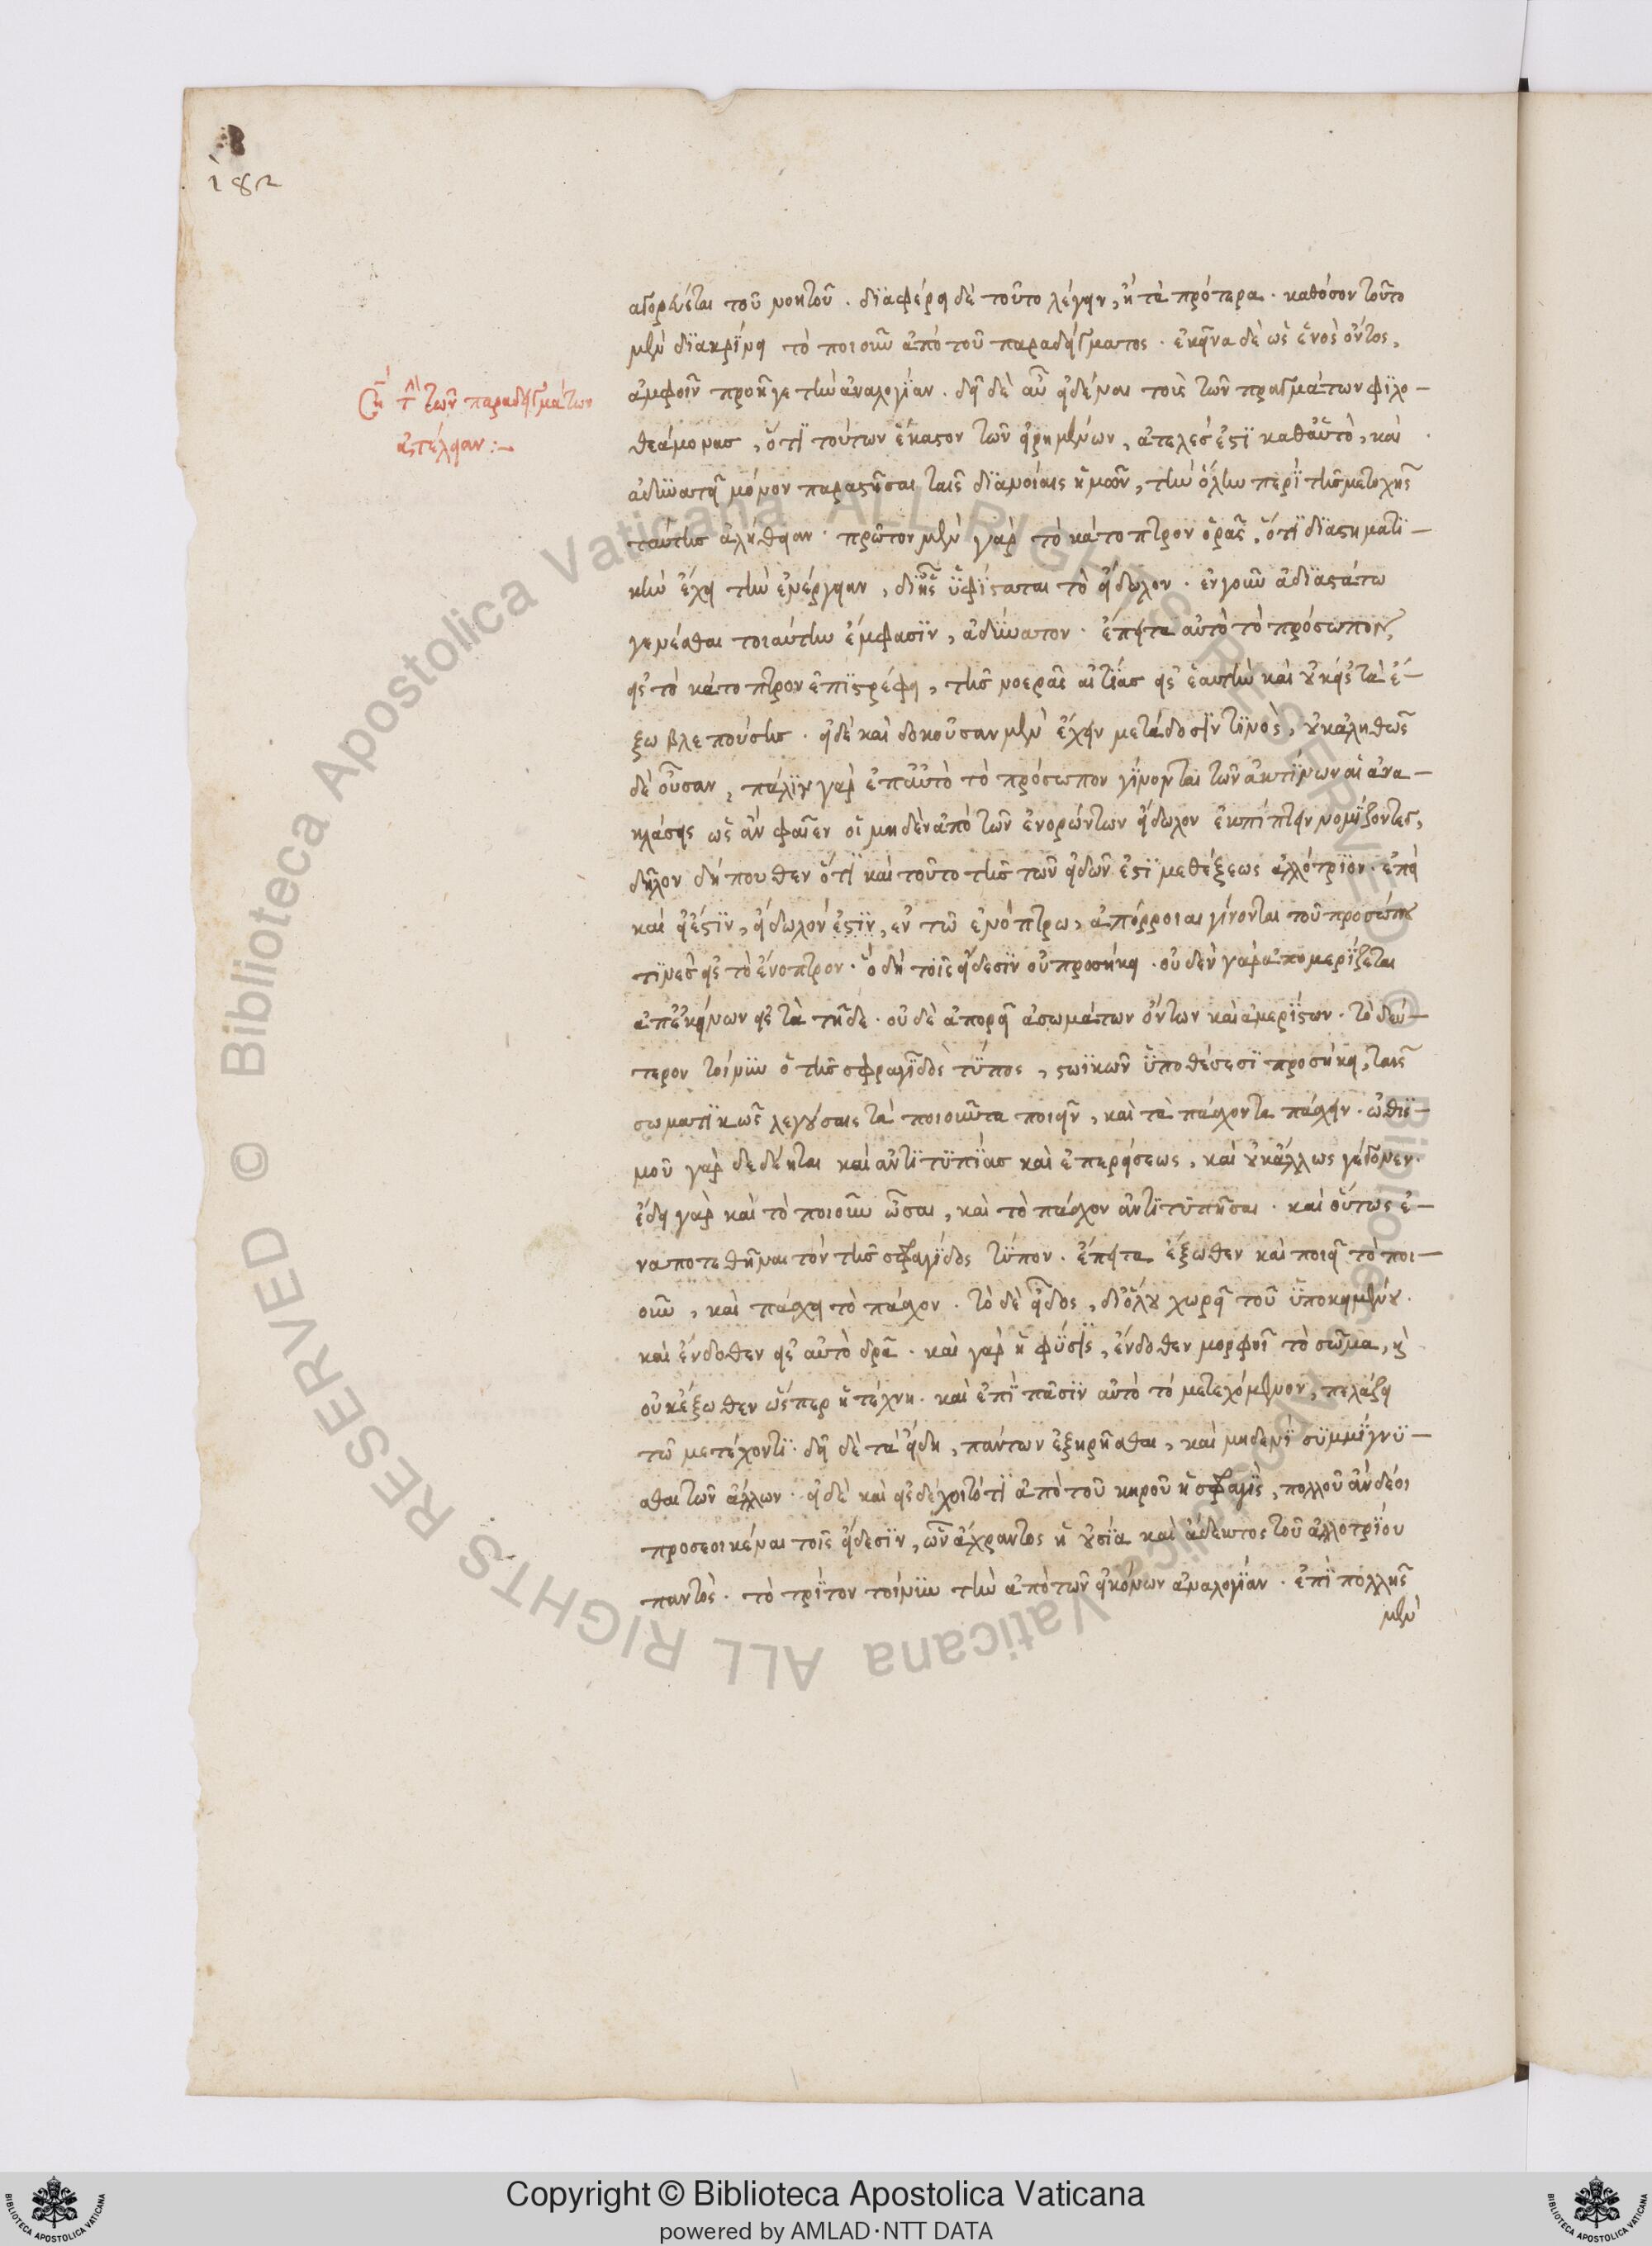 182
αγορεύεται τοῦ νοητοῦ. διαφέρει δὲ τοῦτο λέγειν, ἢ τὰ πρότερα. καθόσον τοῦτο
μὲν διακρίνει τὸ ποιοῦν ἀπὸ τοῦ παραδείγματος. ἐκεῖνα δὲ ὡς ἑνὸς ὄντος,
ἀμφοῖν προῆγε τὴν ἀναλογίαν. δεῖ δὲ αὖ εἰδέναι τοὺς τῶν πραγμάτων φιλο–
τῶν παραδειγμάτων
ἀτέλειαν :–
θεάμονας, ὅτι τούτων ἕκαστον τῶν εἰρημένων, ἀτελές ἐστι καθ' αὑτὸ, καὶ
ἀδυνατεῖ μόνον παραστῆσαι ταῖς διανοίαις ἡμῶν, τὴν ὅλην περὶ τῆς μετοχῆς
ταύτης ἀλήθειαν. πρῶτον μὲν γὰρ τὸ κάτοπτρον ὁρᾷς, ὅτι διαστηματι–
κὴν ἔχει τὴν ἐνέργειαν, δι' ἧς ὑφίσταται τὸ εἴδωλον. ἐν γοῦν ἀδιαστάτῳ
γενέσθαι τοιαύτην ἔμφασιν, ἀδύνατον. ἔπειτα αὐτὸ τὸ πρόσωπον,
εἰς τὸ κάτοπτρον ἐπιστρέφει, τῆς νοερᾶς αἰτίας εἰς ἑαυτὴν καὶ οὐκ εἰς τὰ ἔ–
ξω βλεπούσης. εἰ δὲ καὶ δοκοῦσαν μὲν ἔχειν μετάδοσίν τινος, οὐκ ἀληθῶς
δὲ οὖσαν, πάλιν γὰρ ἐπ' αὐτὸ τὸ πρόσωπον γίνονται τῶν ἀκτίνων αἱ ἀνα–
κλάσεις ὡς ἂν φαῖεν οἱ μηδὲν ἀπὸ τῶν ἐνορώντων εἴδωλον ἐκπίπτειν νομίζοντες,
δῆλον δήπουθεν ὅτι καὶ τοῦτο τῆς τῶν εἰδῶν ἐστι μεθέξεως ἀλλότριον. ἐπεὶ
καὶ εἰ ἔστιν, εἴδωλόν ἐστιν, ἐν τῷ ἐνόπτρῳ, ἀπόρροιαι γίνονται τοῦ προσώπου
τινες εἰς τὸ ἔνοπτρον. ὃ δὴ τοῖς εἴδεσιν οὐ προσήκει. οὐδὲν γὰρ ἀπομερίζεται
ἀπ' ἐκείνων εἰς τὰ τῇδε. οὐδὲ ἀπορρεῖ ἀσωμάτων ὄντων καὶ ἀμερίστων. τὸ δεύ–
τερον τοίνυν ὁ τῆς σφραγῖδος τύπος, στωϊκῶν ὑποθέσεσι προσήκει, ταῖς
σωματικῶς λεγούσαις τὰ ποιοῦντα ποιεῖν, καὶ τὰ πάσχοντα πάσχειν. ὠθισ–
μοῦ γὰρ δεδέηται καὶ ἀντιτυπίας καὶ ἐπερείσεως, καὶ οὐκ ἄλλως γέγονεν.
ἔδει γὰρ καὶ τὸ ποιοῦν ὦσαι, καὶ τὸ πάσχον ἀντιτυπῆσαι. καὶ οὕτως ἐ–
ναποτεθῆναι τὸν τῆς σφραγίδος τύπον. ἔπειτα ἔξωθεν καὶ ποιεῖ τὸ ποι–
οῦν, καὶ πάσχει τὸ πάσχον. τὸ δὲ εἶδος, δι' ὅλου χωρεῖ τοῦ ὑποκειμένου.
καὶ ἔνδοθεν εἰς αὐτὸ δρᾷ. καὶ γὰρ ἡ φύσις, ἔνδοθεν μορφοῖ τὸ σῶμα, καὶ
οὐκ ἔξωθεν ὥσπερ ἡ τέχνη. καὶ ἐπὶ πᾶσιν αὐτὸ τὸ μετεχόμενον, πελάζει
τῷ μετέχοντι. δεῖ δὲ τὰ εἴδη, πάντων ἐξῃρῆσθαι, καὶ μηδενὶ συμμίγνυ–
σθαι τῶν ἄλλων. εἰ δὲ καὶ εἰσδέχοιτό τι ἀπὸ τοῦ κηροῦ ἡ σφραγὶς, πολλοῦ ἂν δέοι
προσεοικέναι τοῖς εἴδεσιν, ὧν ἄχραντος ἡ οὐσία καὶ ἄδεκτος τοῦ ἀλλοτρίου
παντὸς. τὸ τρίτον τοίνυν τὴν ἀπὸ τῶν εἰκόνων ἀναλογίαν. ἐπὶ πολλῆς
μὲν
Copyright © Biblioteca Apostolica Vaticana
powered by AMLAD·NTT DATA